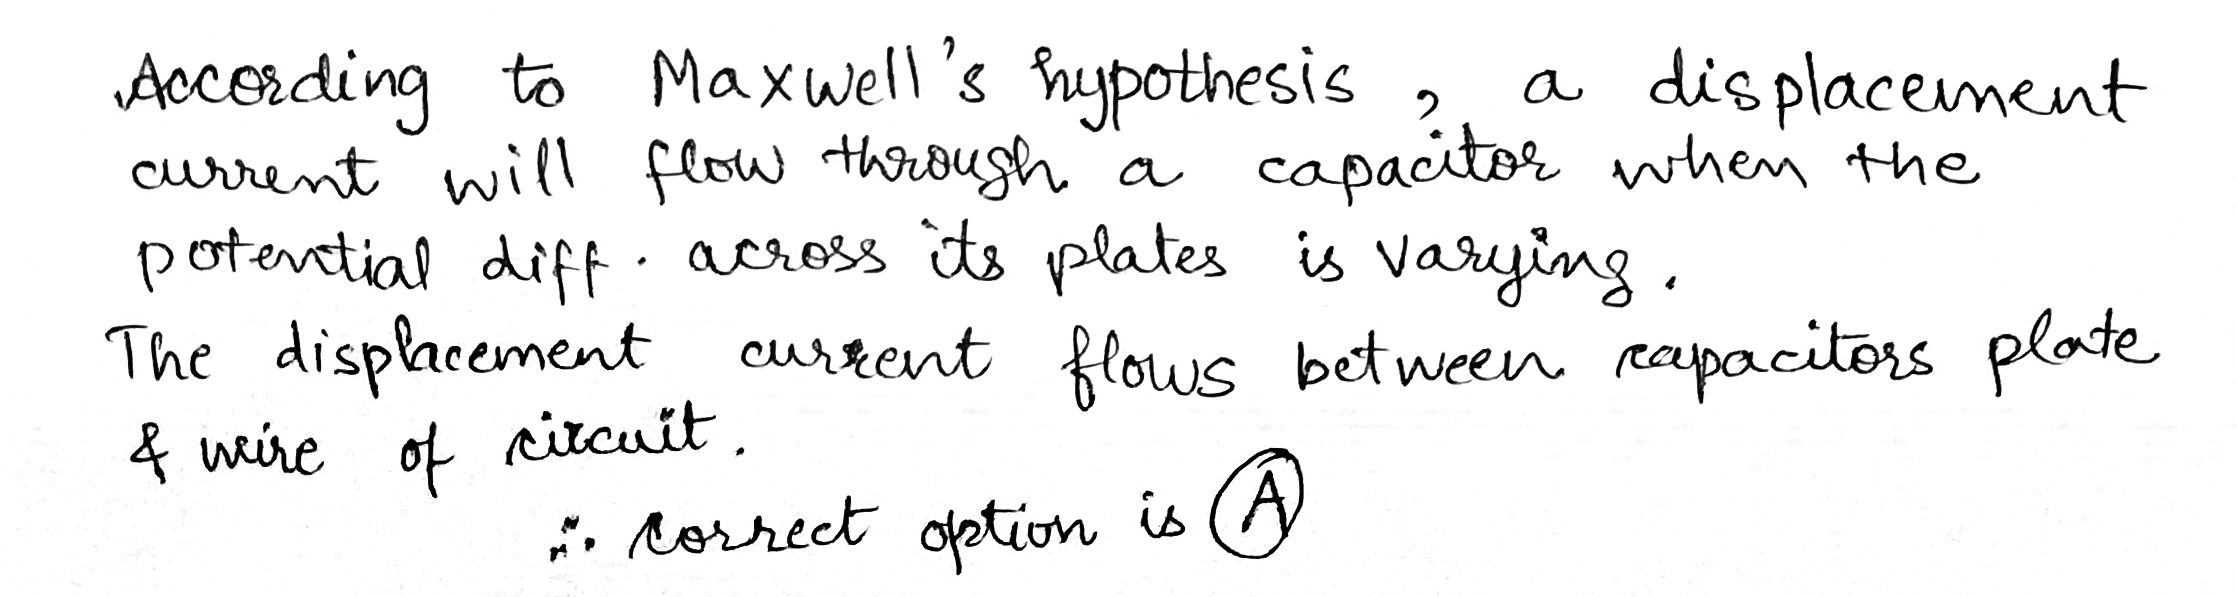 According to Maxwell's hypothesis, a displacement
current will flow through a capacitor when the
potential diff. across its plates is varying.
The displacement current flows between capacitors plate
& wire of circuit.
∴ correct option is A